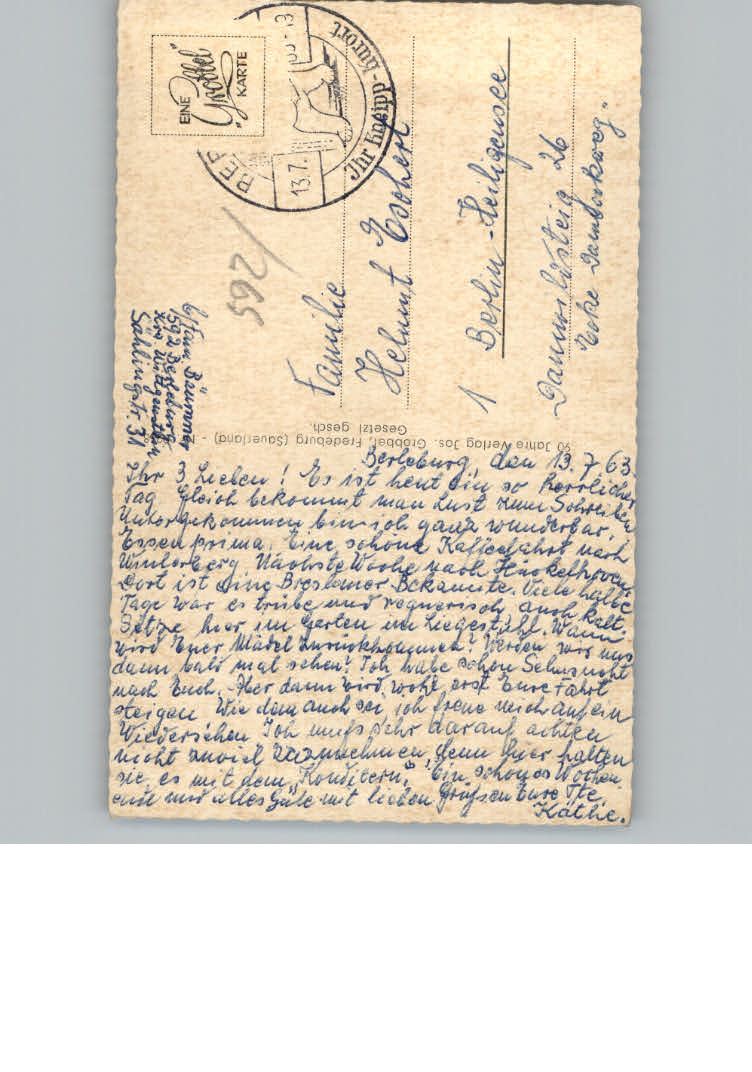 Berleburg, den 13.7.63.
Ihr 3 Lieben! Es ist heut ein so herrlicher
Tag. Gleich bekommt man Lust zum Schreiben
Untergekommen bin ich ganz wunderbar,
Essen prima. Eine schöne Kaffeefahrt nach
Winterberg. Nächste Woche nach
Dort ist eine Breslauer Bekannte. Viele halbe
Tage war es trübe und regnerisch auch kalt.
Sitze hier im Garten im Liegestuhl. Wann
wird Euer Mädel zurückkommen? Werden wir uns
dann bald mal sehen? Ich habe schon Sehnsucht
nach Euch. Aber dann wird wohl erst Eure Fahrt
steigen. Wie dem auch sei ich freue mich auf ein
Wiedersehen. Ich muß sehr darauf achten
nicht zuviel zuzunehmen denn hier halten
sie es mit dem „Konditern." Ein schönes Wochen
ende und alles Gute mit lieben Grüßen Eure
Käthe.
90 Jahre Verlag Jos. Grobbel, Fredeburg (Sauerland) -
Gesetzl gesch.
592 Berleburg
Krs Wittgenstein
Sählingstr. 31
EINE
„Grobbel"
KARTE
BER
13.7.
-13
Ihr Kneipp-Kurort
265
Familie
Helmut Eschert
1 Berlin-Heiligensee
26
Ecke